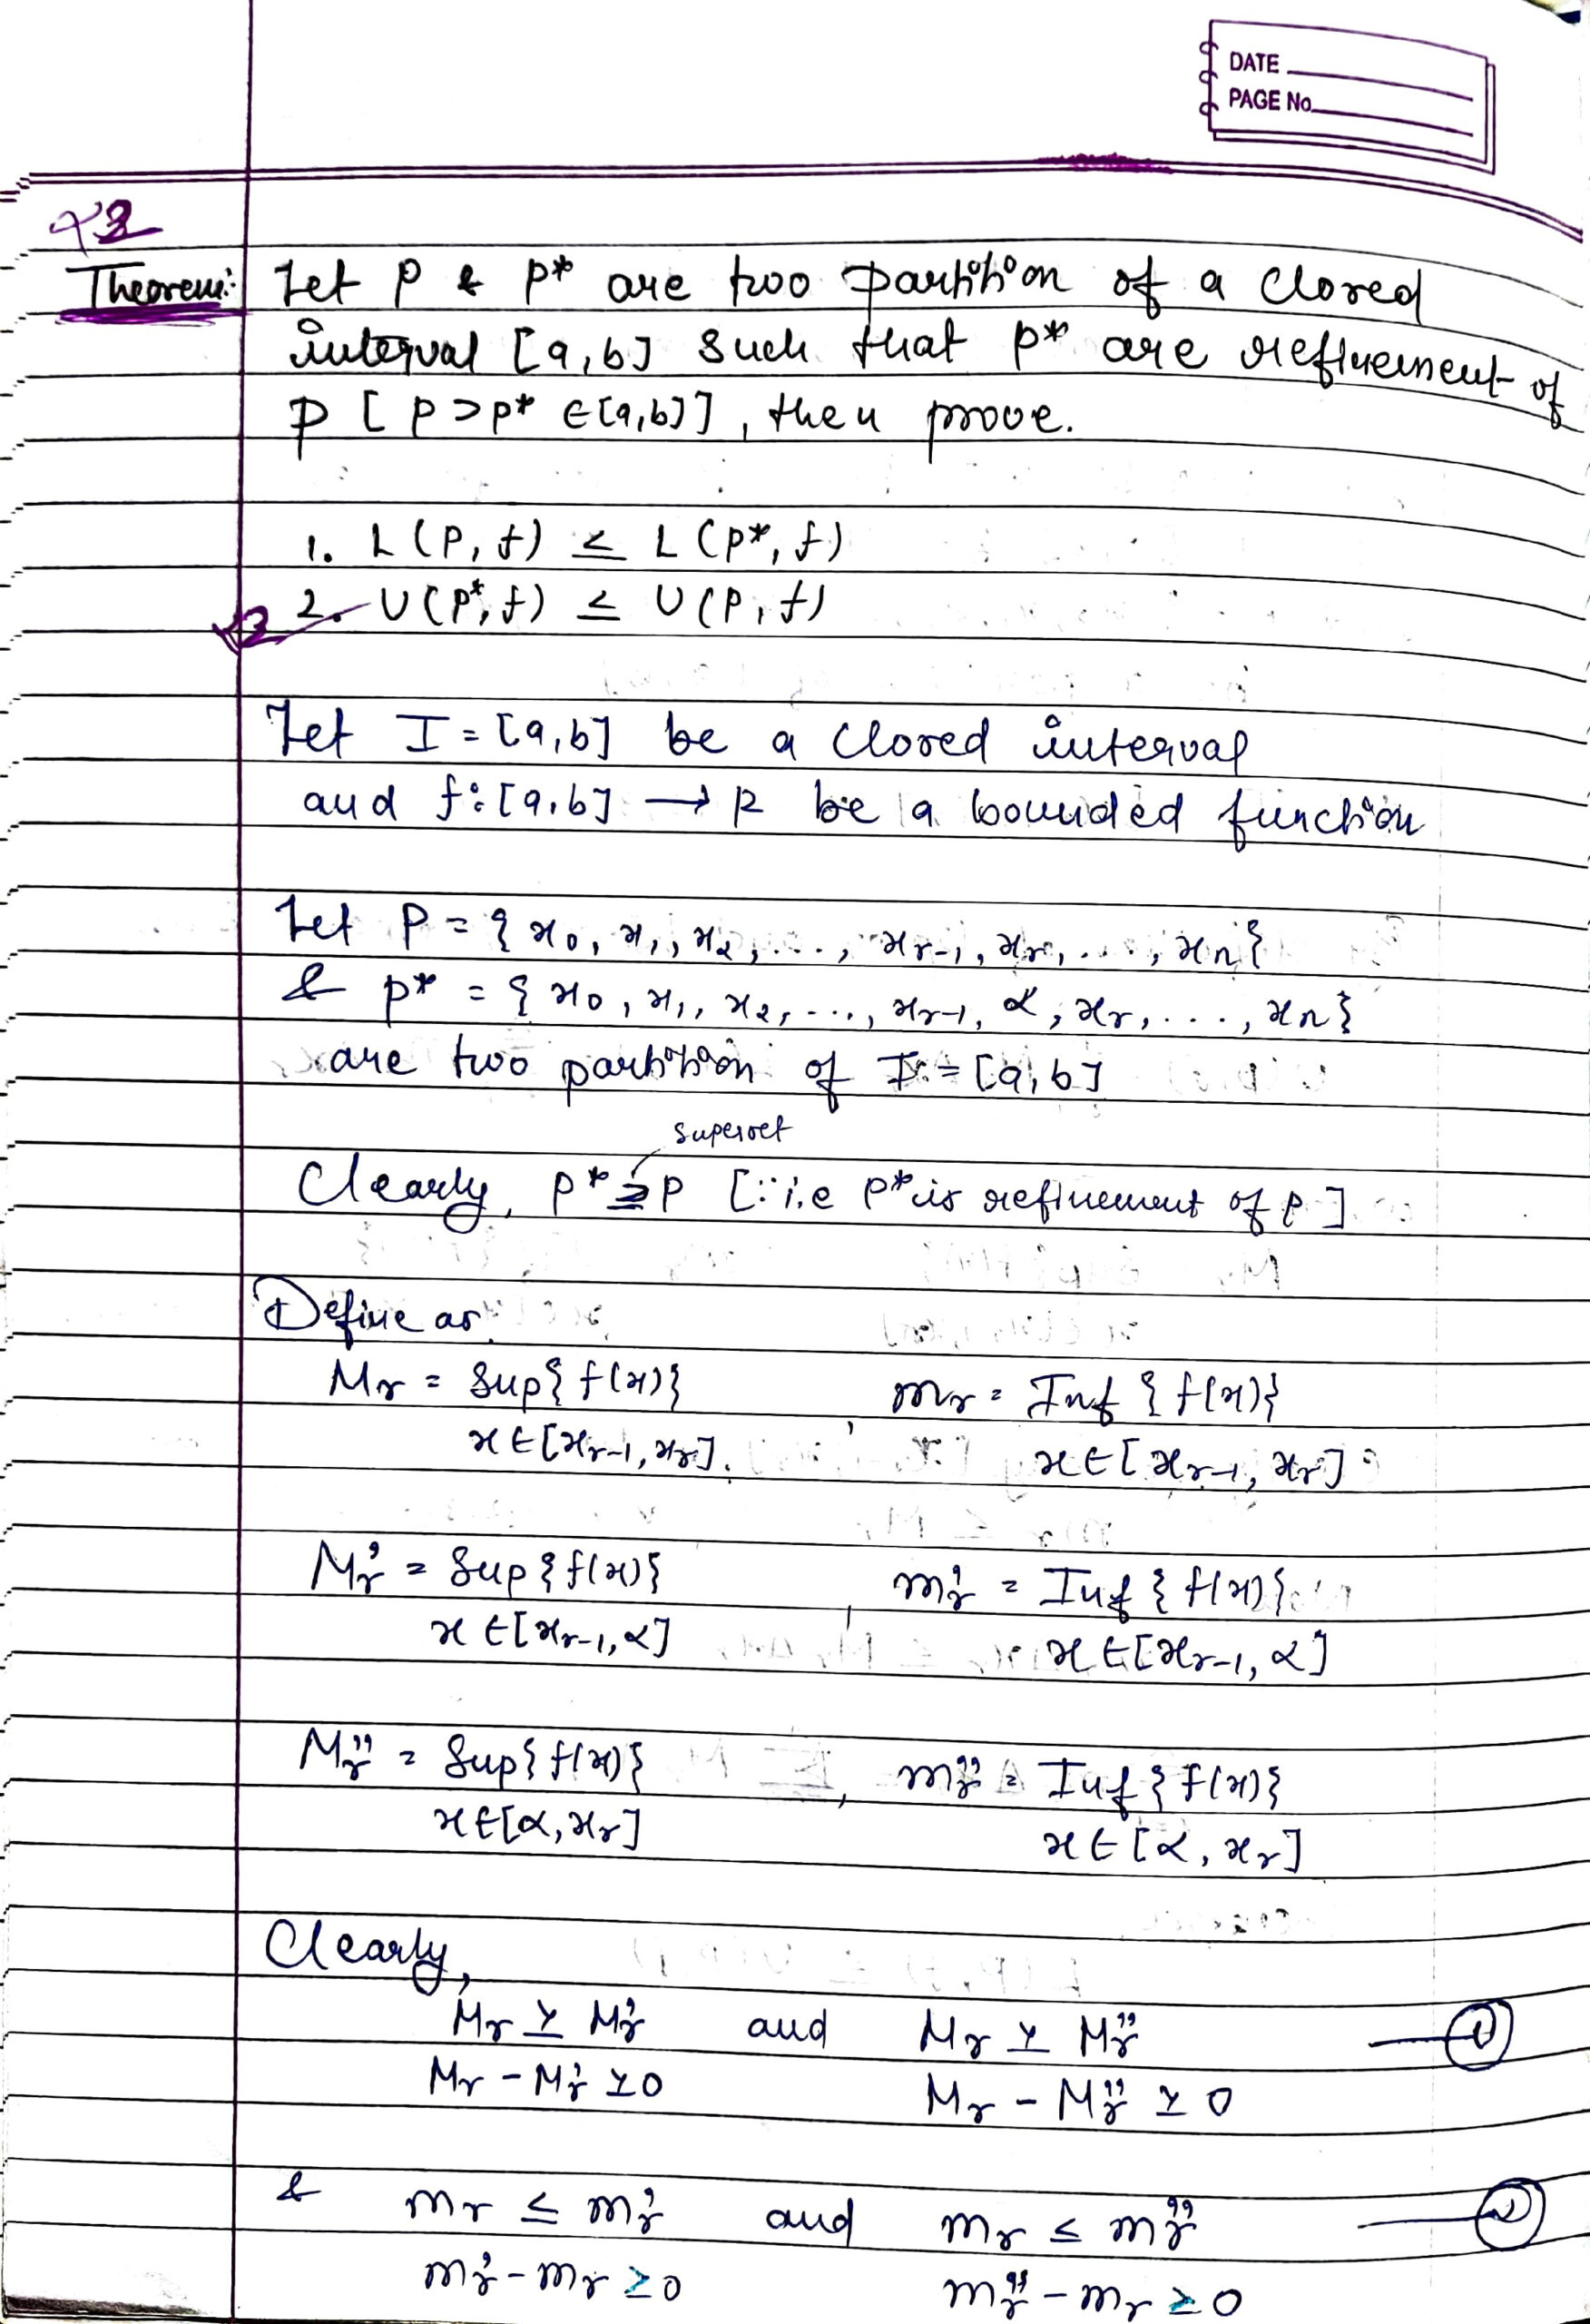 DATE
PAGE No.
Theorem: Let P & P* are two partition of a closed
interval [a,b] such that P* are refinement of
P [ P ⊃ P* ∈ [a,b] ], then prove.
1. L(P, f) ≤ L(P*, f)
2. U(P*, f) ≤ U(P, f)
Let I = [a,b] be a closed interval
and f: [a,b] → R be a bounded function
Let P = { x₀, x₁, x₂, ..., xᵣ₋₁, xᵣ, ..., xₙ }
& P* = { x₀, x₁, x₂, ..., xᵣ₋₁, α, xᵣ, ..., xₙ }
are two partition of I = [a,b]
superset
Clearly, P* ⊇ P [∵ i.e P* is refinement of P ]
Define as
Mᵣ = Sup{ f(x) } , mᵣ = Inf { f(x) }
x ∈ [xᵣ₋₁, xᵣ]. x ∈ [xᵣ₋₁, xᵣ]
Mᵣ' = Sup { f(x) } , mᵣ' = Inf { f(x) }
x ∈ [xᵣ₋₁, α] x ∈ [xᵣ₋₁, α]
Mᵣ'' = Sup{ f(x) } , mᵣ'' = Inf { f(x) }
x ∈ [α, xᵣ] x ∈ [α, xᵣ]
Clearly,
Mᵣ ≥ Mᵣ' and Mᵣ ≥ Mᵣ'' — ①
Mᵣ - Mᵣ' ≥ 0 Mᵣ - Mᵣ'' ≥ 0
& mᵣ ≤ mᵣ' and mᵣ ≤ mᵣ'' — ②
mᵣ' - mᵣ ≥ 0 mᵣ'' - mᵣ ≥ 0